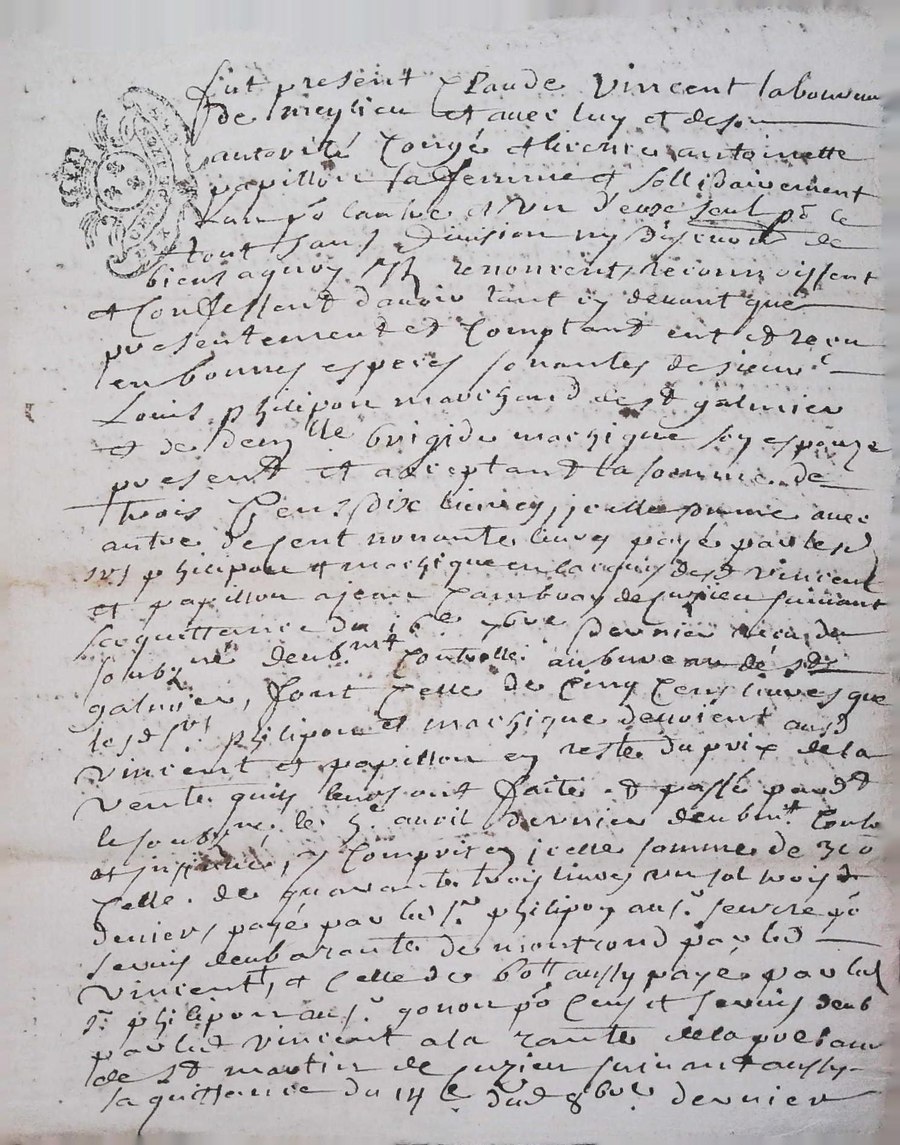 fut present Claude Vincent laboureur
de meylieu et avec luy et de son
autorité Congé et licence antoinette
papillon sa femme et sollidairement
L'un po l'autre et un d'eux seul po le
tout sans division ny discution de
biens a quoy ils renoncent, reconnoissent
et Confessent d'avoir tant cy devant que
presentement et Comptant eut et recu
en bonnes especes sonnantes de sieur
Louis philipon marchand de St galmier
et de demlle brigide machique son espouze
present et acceptant la somme de
trois Cens dix livres, jcelle somme avec
autre de cent nonante livres payé par lesd
srs philipon et machique en l'acquis desd Vincent
et papillon a jean de Cuzieu suivant
sa quittance du 16e 7bre dernier recu du
soubzné deubmt Controllé au bureau de St
galmier, font Celle de Cinq Cens livres que
lesd srs philipon et machique devoient ausd
Vincent et papillon en reste du prix de la
vente quils leurs ont faite et passé pardt
le soubzne le 5e avril dernier deubmt Contle
et insinué, y Compris en jcelle somme de 310
Celle de quarante trois livres un sol trois
deniers, payé par led sr philipon au sr po
servis deub a rante de montrond par led
Vincent, et Celle de 60tt aussy payé par led
sr philipon au sr gonon po Cens et servis deub
par led Vincent a la rante de la prebande
de St martin de Cuzieu suivant aussy
sa quittance du 14e dud 8bre dernier